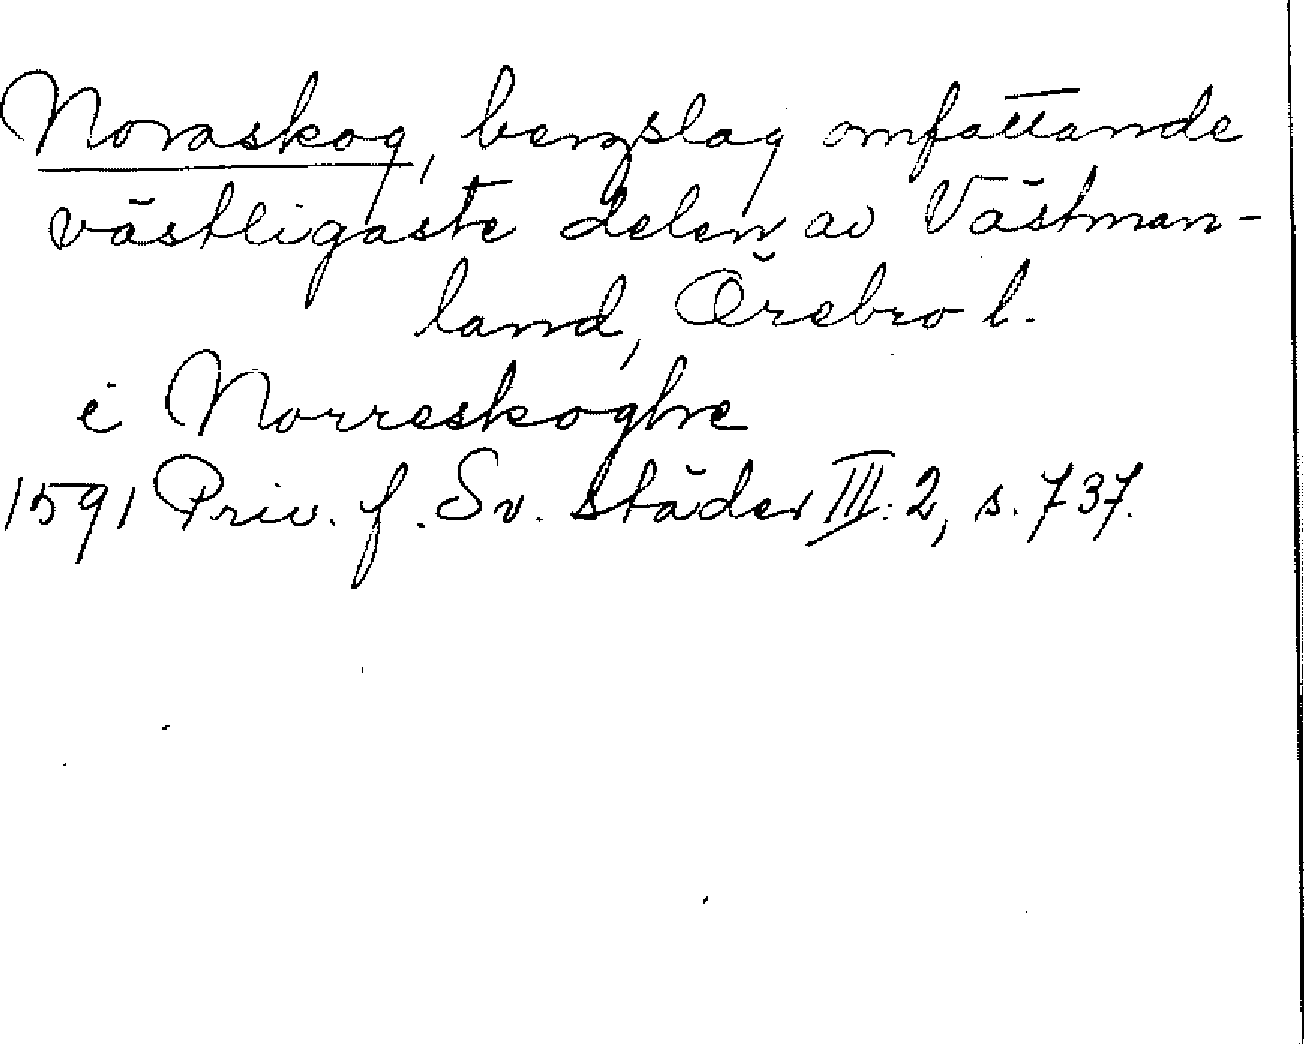 Noraskog, bergslag omfattande
västligaste delen av Västman-
land, Örebro l.
i Norreskoghe
1591 Priv. f. Sv. städer III: 2, s. 737.